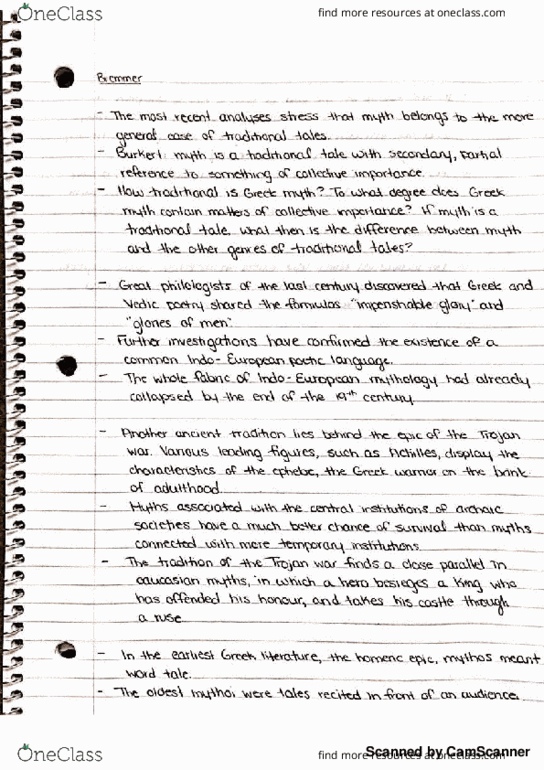 OneClass
find more resources at oneclass.com
Bremmer
- The most recent analyses stress that myth belongs to the more
general case of traditional tales.
- Burkert myth is a traditional tale with secondary, partial
reference to something of collective importance.
- How traditional is Greek myth? To what degree does Greek
myth contain matters of collective importance? If myth is a
traditional tale what then is the difference between myth
and the other genres of traditional tales?
- Great philologists of the last century discovered that Greek and
Vedic poetry shared the formulas "imperishable glory" and
"glories of men"
- Further investigations have confirmed the existence of a
common Indo-European poetic language.
- The whole fabric of Indo-European mythology had already
collapsed by the end of the 19th century
- Another ancient tradition lies behind the epic of the Trojan
war. Various leading figures, such as Achilles, display the
characteristics of the ephebe, the Greek warrior on the brink
of adulthood.
- Myths associated with the central institutions of archaic
societies have a much better chance of survival than myths
connected with more temporary institutions.
- The tradition of the Trojan war finds a close parallel in
caucasian myths, in which a hero besieges a King who
has offended his honour, and takes his castle through
a ruse
- In the earliest Greek literature, the homeric epic, mythos meant
word tale.
- The oldest mythoi were tales recited in front of an audience.
OneClass
find more resources at oneclass.com
Scanned by CamScanner